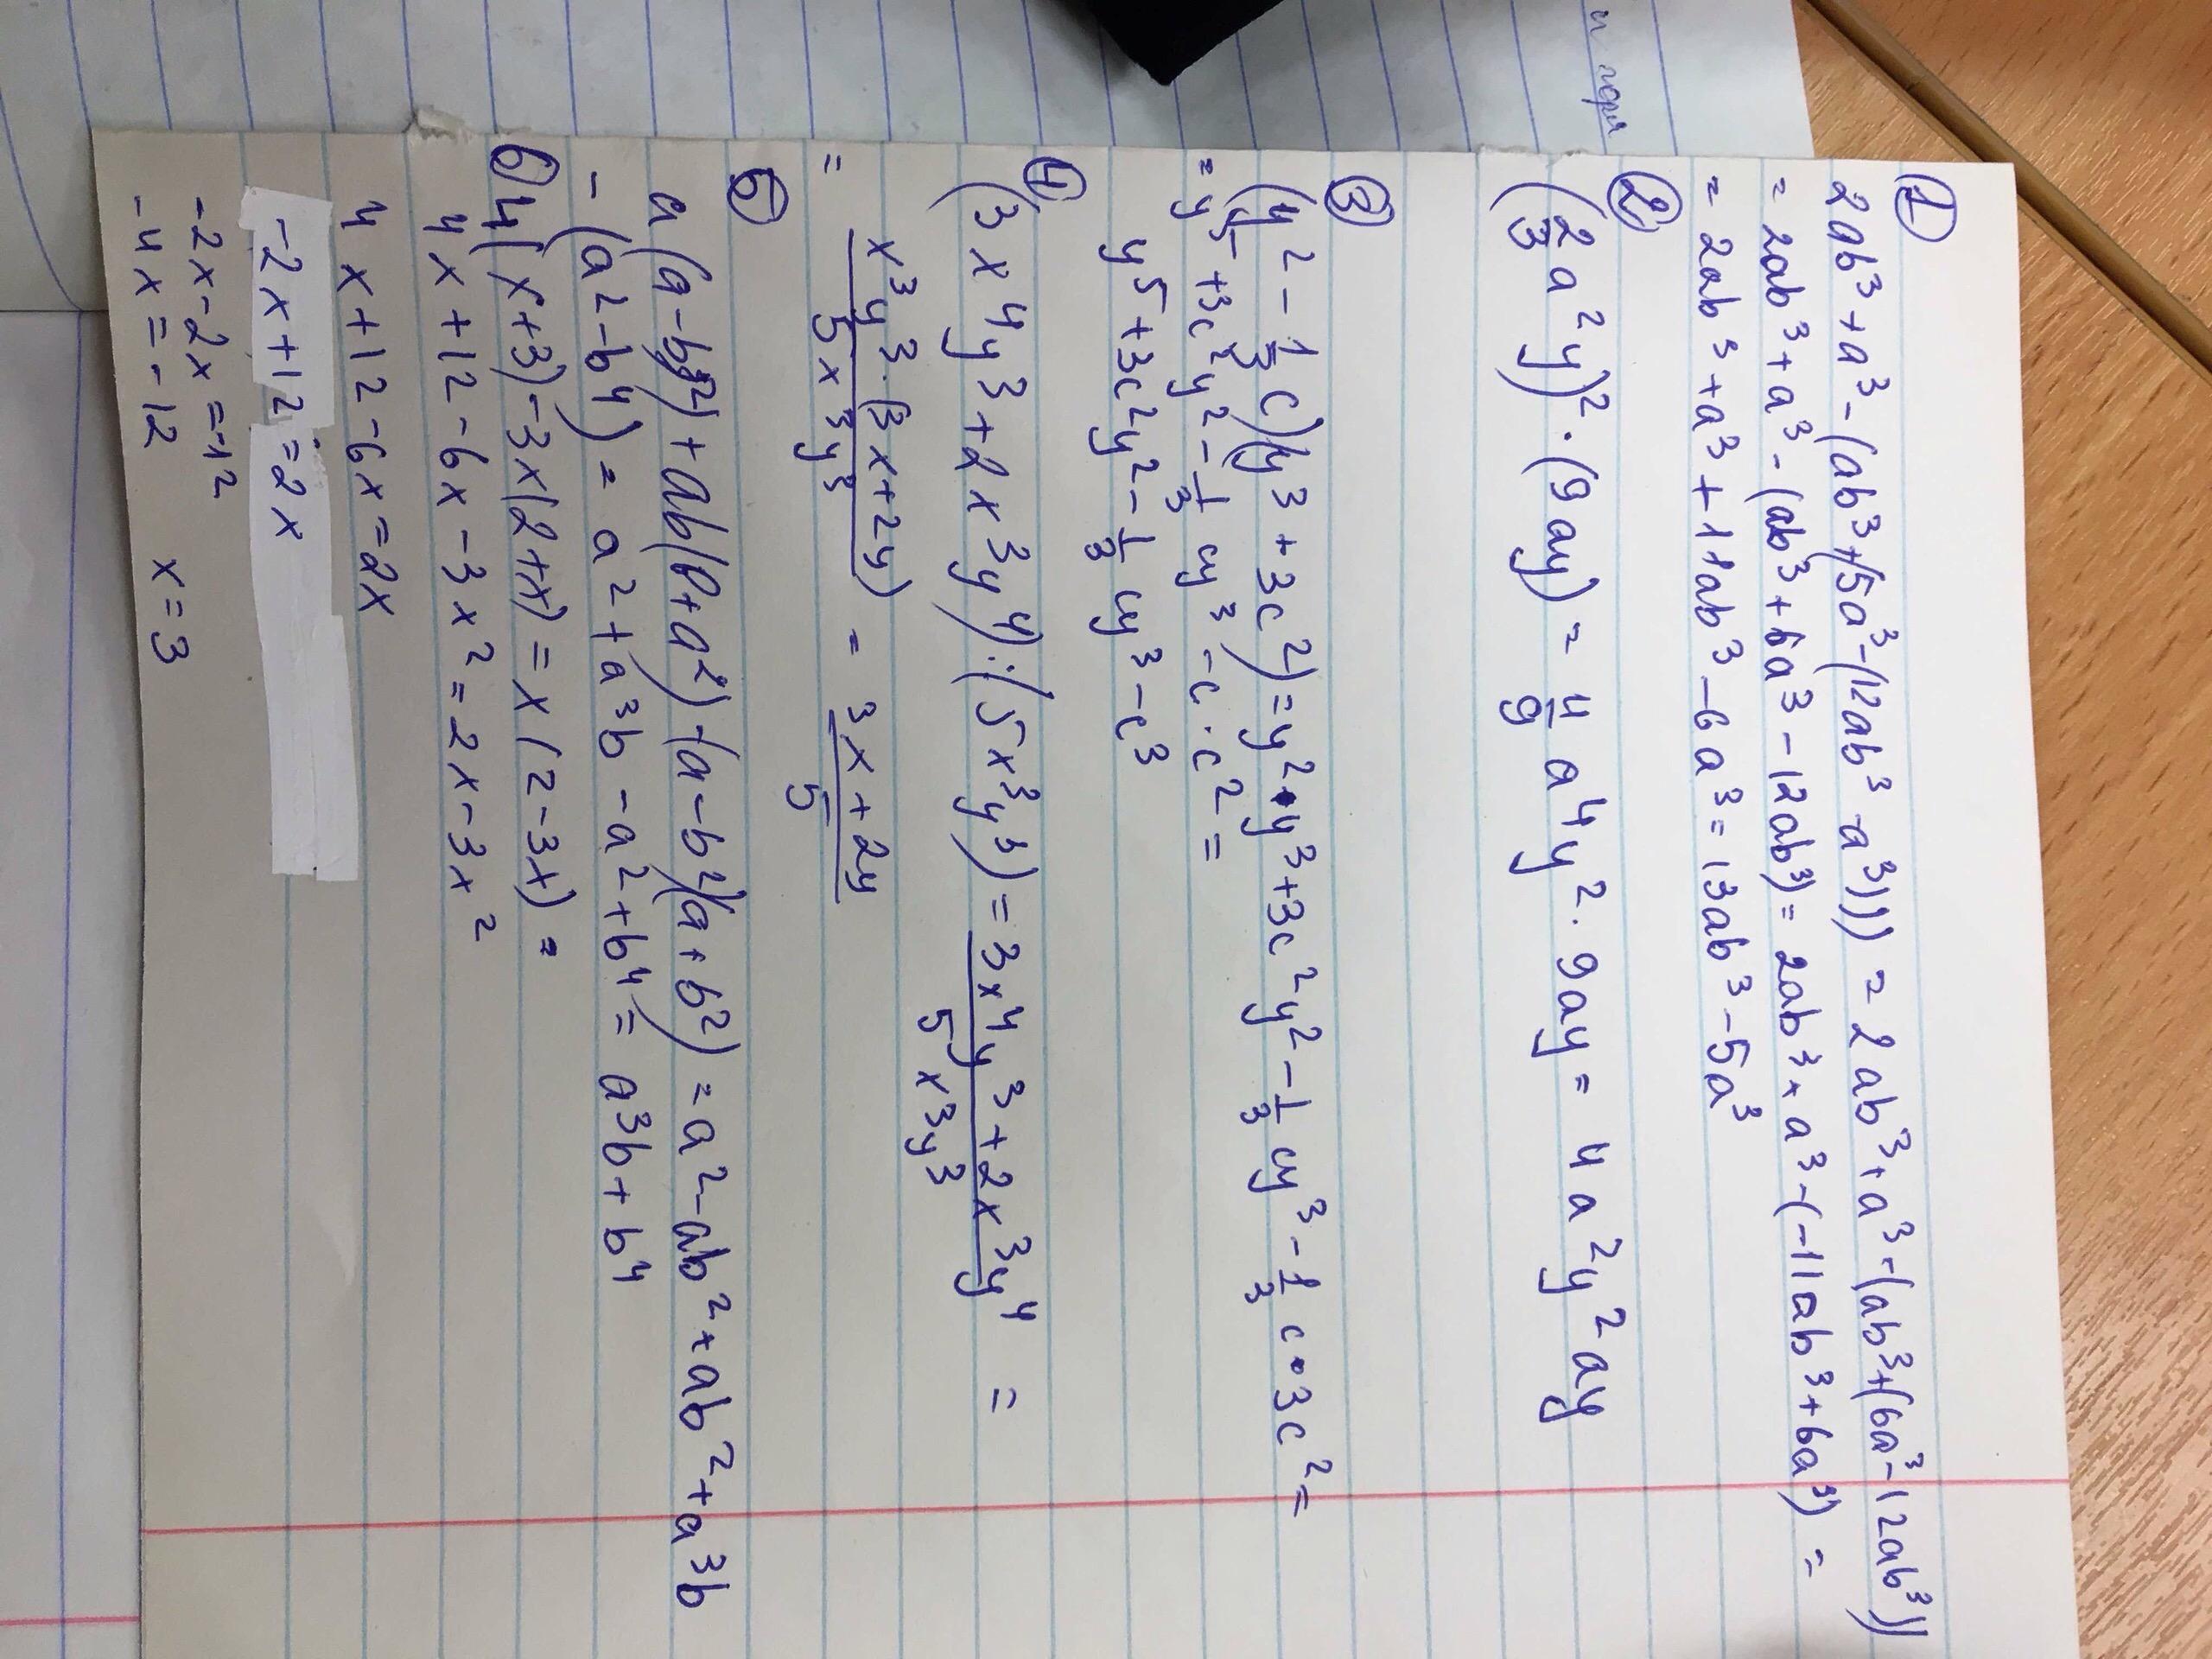 и горя
①
2ab³+a³-(ab³+(5a³-(12ab³-a³))) = 2ab³+a³-(ab³+(6a³-12ab³))
= 2ab³+a³-(ab³+6a³-12ab³) = 2ab³+a³-(-11ab³+6a³) =
= 2ab³+a³+11ab³-6a³ = 13ab³-5a³
②
(2/3 a²y)²·(9ay) = 4/9 a⁴y²·9ay = 4a²y²ay
③
(y²-1/3c)(y³+3c²) = y²·y³+3c²y²-1/3cy³-1/3c·3c² =
= y⁵+3c²y²-1/3cy³-c·c² =
y⁵+3c²y²-1/3cy³-c³
④
(3x⁴y³+2x³y⁴):(5x³y³) = (3x⁴y³+2x³y⁴)/(5x³y³) =
= x³y³·(3x+2y)/(5x³y³) = (3x+2y)/5
5
a(a-b²)+ab(b+a²)-(a-b²)(a+b²) = a²-ab²+ab²+a³b
-(a²-b⁴) = a²+a³b-a²+b⁴ = a³b+b⁴
6) 4(x+3)-3x(2+x) = x(2-3x) =
4x+12-6x-3x² = 2x-3x²
4x+12-6x=2x
-2x+12=2x
-2x-2x=-12
-4x=-12 x=3